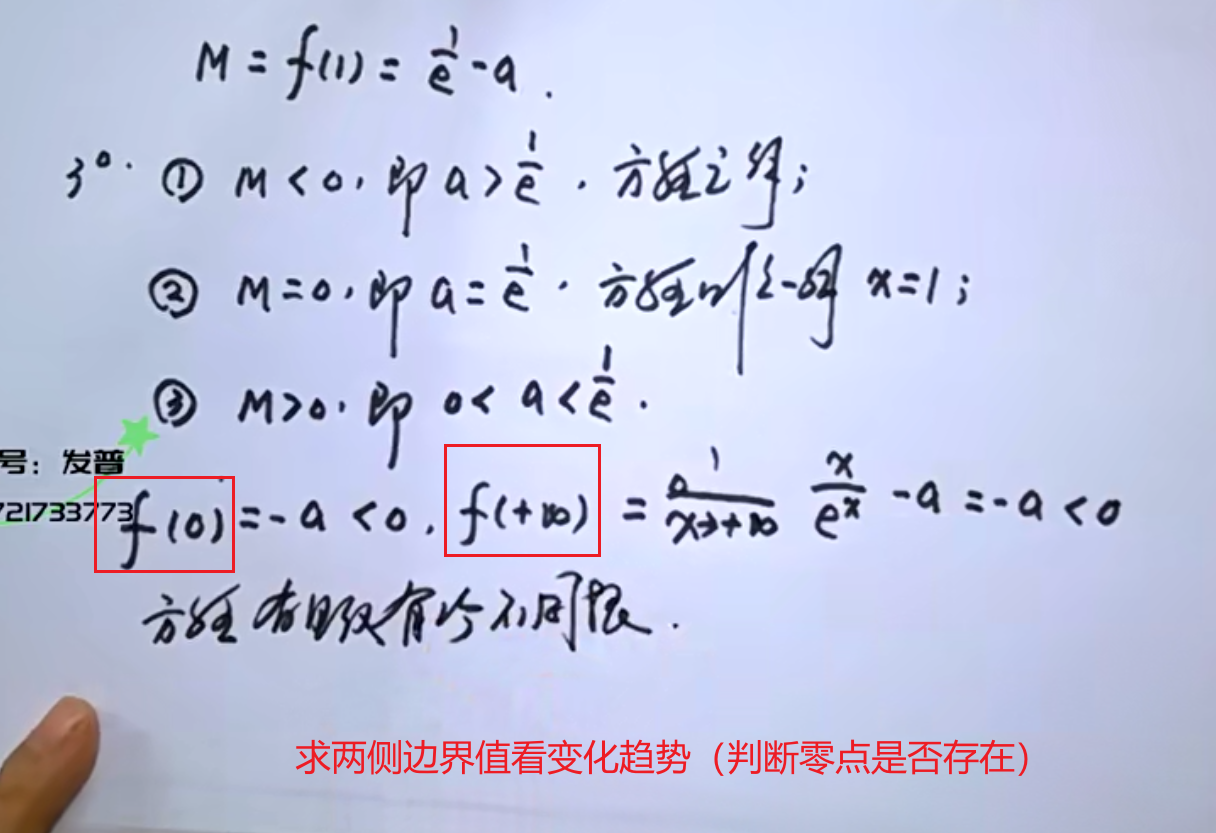 M = f(1) = 1/e - a .
3°. ① M < 0, 即 a > 1/e . 方程无解;
② M = 0, 即 a = 1/e . 方程有且仅一个根 x = 1;
③ M > 0, 即 0 < a < 1/e .
号：发普
721733773
f(0) = -a < 0, f(+∞) = lim x→+∞ x/e^x - a = -a < 0
方程有且仅有两个不同根.
求两侧边界值看变化趋势（判断零点是否存在）